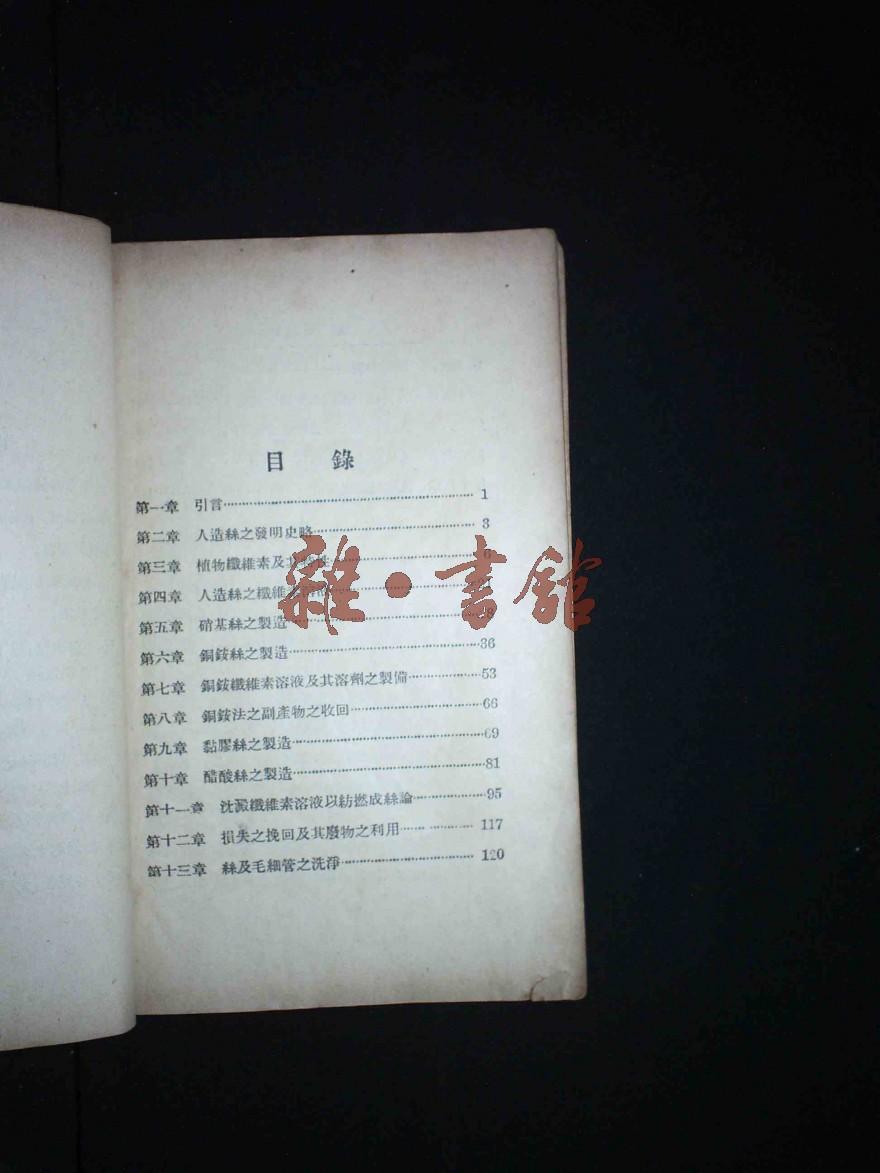 目 錄
第一章 引言 1
第二章 人造絲之發明史略 3
第三章 植物纖維素及其特性 6
第四章 人造絲之纖維素
第五章 硝基絲之製造
第六章 銅銨絲之製造 36
第七章 銅銨纖維素溶液及其溶劑之製備 53
第八章 銅銨法之副產物之收回 66
第九章 黏膠絲之製造 69
第十章 醋酸絲之製造 81
第十一章 沈澱纖維素溶液以紡撚成絲論 95
第十二章 損失之挽回及其廢物之利用 117
第十三章 絲及毛細管之洗淨 120
雜·書館